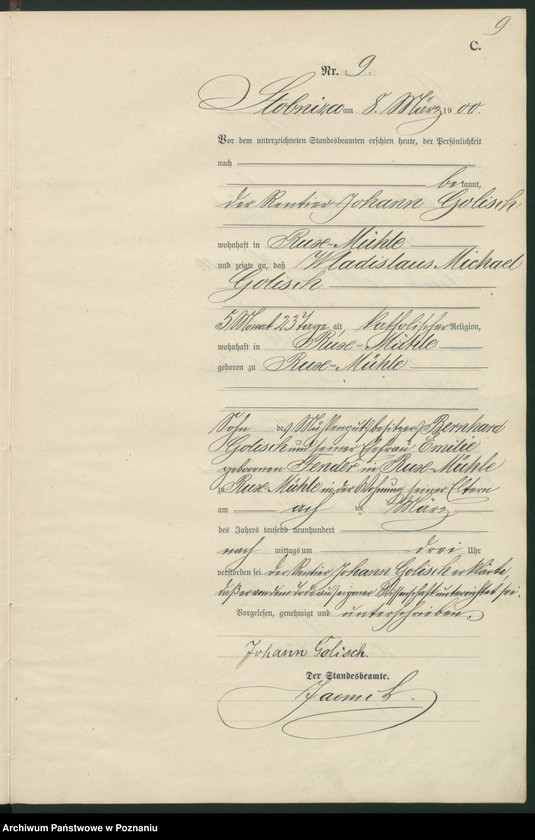 9
C.
Nr. 9.
Stobnica am 8. März 1900.
Vor dem unterzeichneten Standesbeamten erschien heute, der Persönlichkeit
nach
bekannt,
der Rentier Johann Golisch
wohnhaft in Ruxe-Mühle
und zeigte an, daß Wladislaus Michael
Golisch
5 Monat 23 Tage alt katholischer Religion,
wohnhaft in Ruxe-Mühle
geboren zu Ruxe-Mühle
Sohn des Mühlengutsbesitzers Bernhard
Golisch und seiner Ehefrau Emilie
geborenen Fender in Ruxe-Mühle
zu Ruxe-Mühle in der Wohnung seiner Eltern
am acht ten März
des Jahres tausend neunhundert
nach mittags um drei Uhr
verstorben sei. Der Rentier Johann Golisch erklärte,
daß er von dem Tode aus eigener Wissenschaft unterrichtet sei.
Vorgelesen, genehmigt und unterschrieben
Johann Golisch.
Der Standesbeamte.
Archiwum Państwowe w Poznaniu